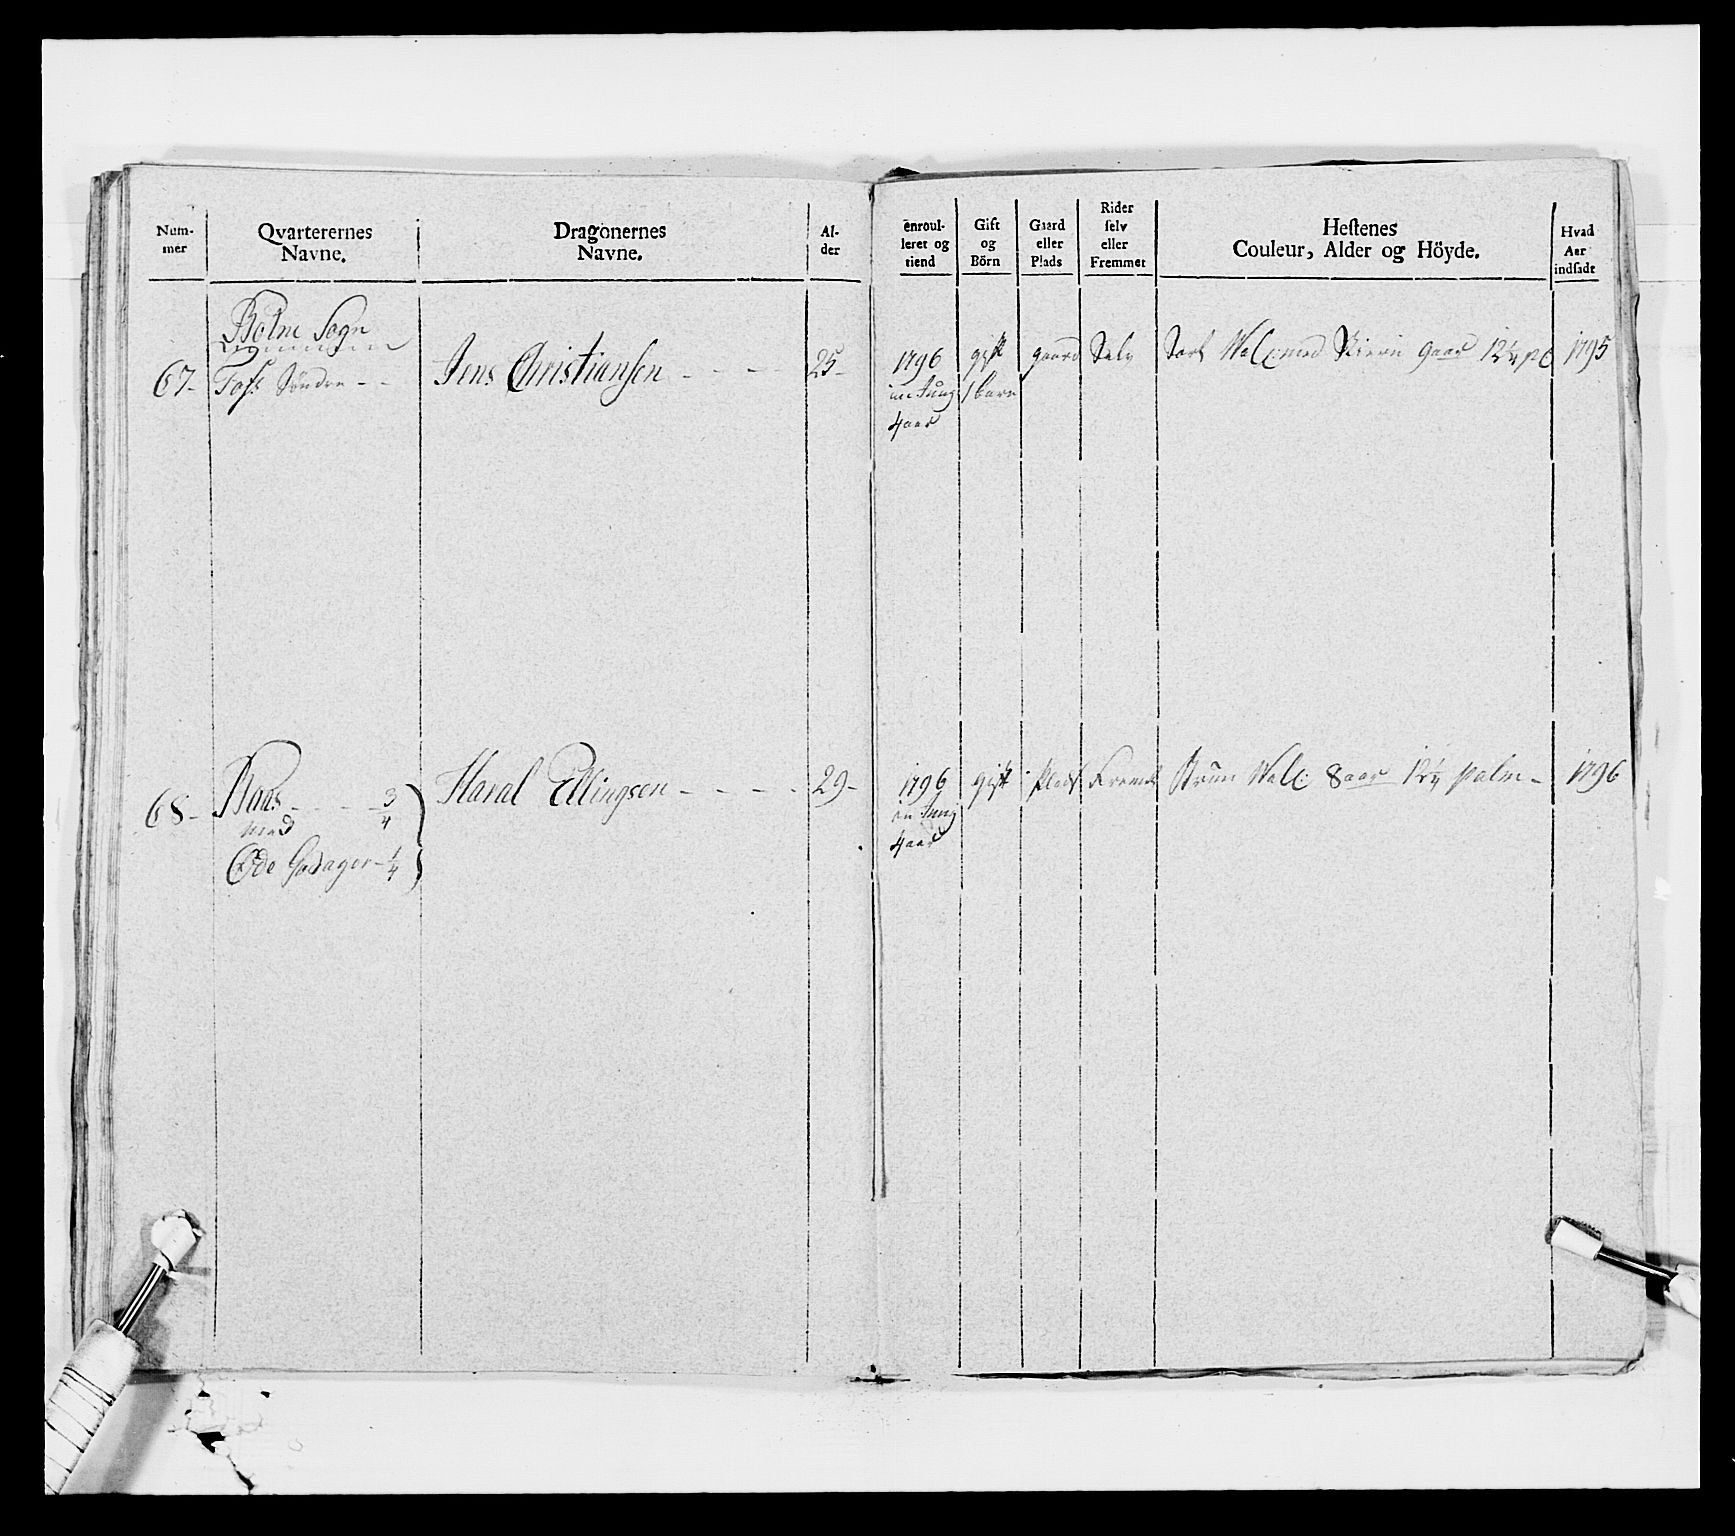 Num-
mer
Qvarterernes
Navne.
Dragonernes
Navne.
Al-
der
enroul-
leret og
tiend
Gift
og
Börn
Gaard
eller
Plads
Rider
selv
eller
Fremmet
Hestenes
Couleur, Alder og Höyde.
Hvad
Aar
indsadt
Botne Sogn
67-
Foss Söndre - -
Jens Christiansen - - - -
25-
1796
4 aar
gift
1 barn
gaard
Selv
Sort Val: med Stierne 9 aar 12¼ pl
1795
68-
Baas - - - - 3/4
med
Öde Gadager - 1/4
Haral Ellingsen - - - - -
29-
1796
4 aar
gift
Plads
Fremd
Bruun Val: 8 aar 12¼ palm -
1796